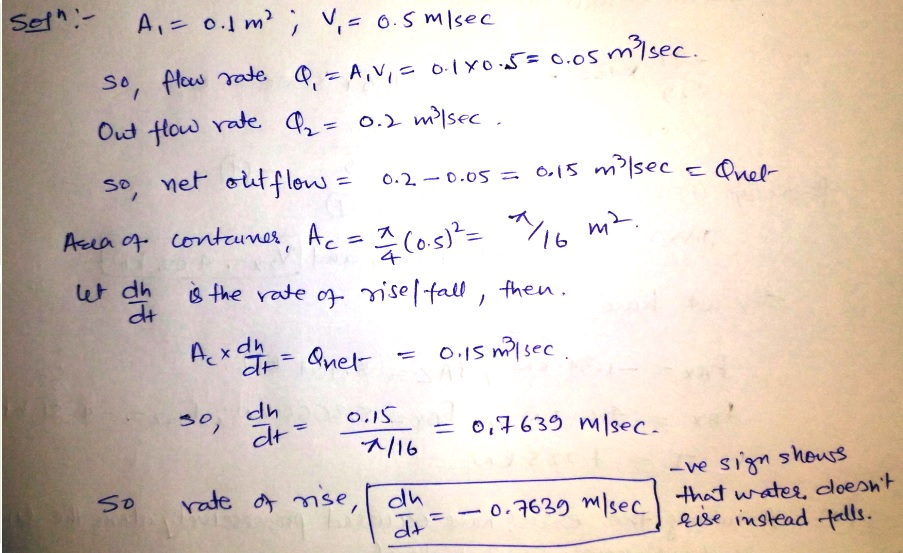 Solⁿ:- A₁ = 0.1 m² ; V₁ = 0.5 m/sec
so, flow rate Q₁ = A₁V₁ = 0.1 x 0.5 = 0.05 m³/sec.
Out flow rate Q₂ = 0.2 m³/sec.
so, net outflow = 0.2 - 0.05 = 0.15 m³/sec = Qnet
Area of container, Ac = π/4 (0.5)² = π/16 m².
let dh/dt is the rate of rise/fall, then.
Ac x dh/dt = Qnet = 0.15 m³/sec.
so, dh/dt = 0.15 / π/16 = 0.7639 m/sec.
So rate of rise, dh/dt = - 0.7639 m/sec
-ve sign shows
that water doesn't
rise instead falls.